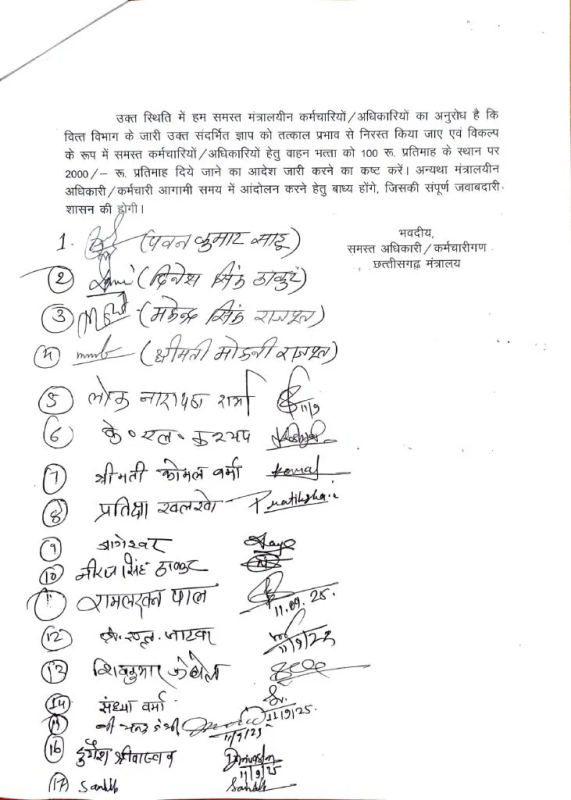 उक्त स्थिति में हम समस्त मंत्रालयीन कर्मचारियों/अधिकारियों का अनुरोध है कि
वित्त विभाग के जारी उक्त संदर्भित ज्ञाप को तत्काल प्रभाव से निरस्त किया जाए एवं विकल्प
के रूप में समस्त कर्मचारियों/अधिकारियों हेतु वाहन भत्ता को 100 रू. प्रतिमाह के स्थान पर
2000/– रू. प्रतिमाह दिये जाने का आदेश जारी करने का कष्ट करें। अन्यथा मंत्रालयीन
अधिकारी/कर्मचारी आगामी समय में आंदोलन करने हेतु बाध्य होंगे, जिसकी संपूर्ण जवाबदारी
शासन की होगी।
भवदीय,
समस्त अधिकारी/कर्मचारीगण
छत्तीसगढ़ मंत्रालय
1. (पवन कुमार साहू)
2 (दिनेश सिंह ठाकुर)
3 (महेन्द्र सिंह राजपूत)
4 (श्रीमती मोहनी राजपूत)
5 लोक नारायण शर्मा 11/9
6 के० एल० कश्यप
7 श्रीमती कोमल वर्मा Komal
8 प्रतिक्षा खलखो Pratiksha
9 बागेश्वर
10 नीरज सिंह ठाकुर
रामलखन पाल 11.09.25.
12 11/9/25
13 शिवकुमार
14 संध्या वर्मा 11/9/25.
11/9/25
16 दुर्गेश श्रीवास्तव 11/9/25
17